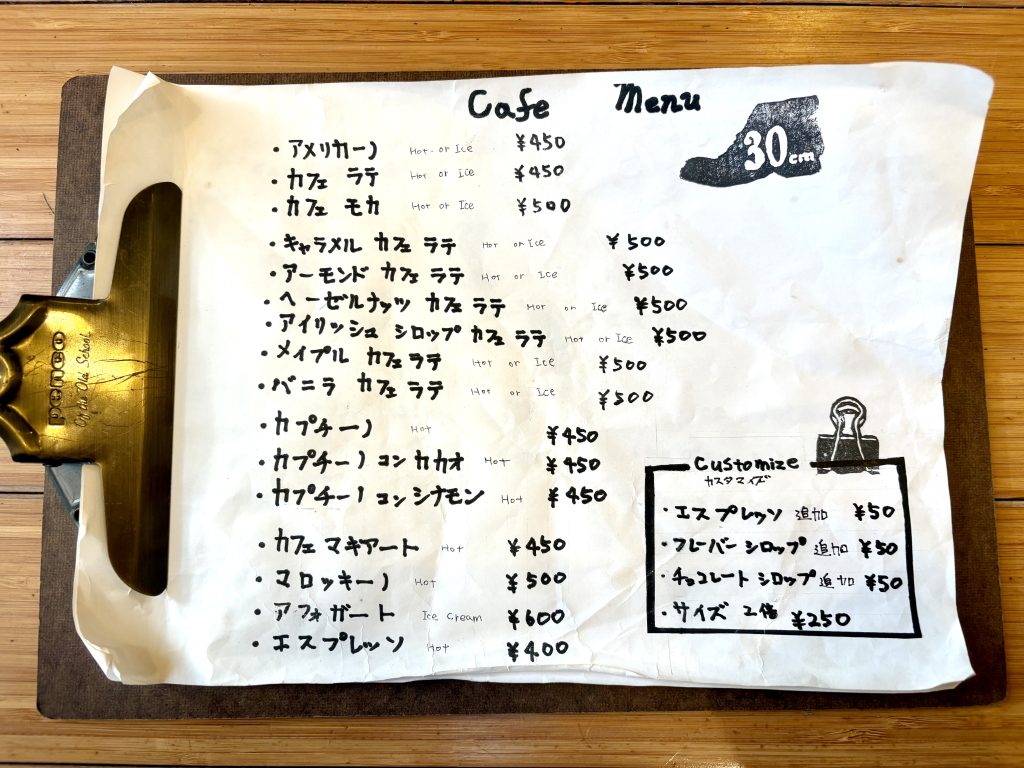 Cafe Menu
30cm
・アメリカーノ Hot or Ice ¥450
・カフェ ラテ Hot or Ice ¥450
・カフェ モカ Hot or Ice ¥500
・キャラメル カフェ ラテ Hot or Ice ¥500
・アーモンド カフェ ラテ Hot or Ice ¥500
・ヘーゼルナッツ カフェ ラテ Hot or Ice ¥500
・アイリッシュ シロップ カフェ ラテ Hot or Ice ¥500
・メイプル カフェ ラテ Hot or Ice ¥500
・バニラ カフェ ラテ Hot or Ice ¥500
・カプチーノ Hot ¥450
・カプチーノ コン カカオ Hot ¥450
・カプチーノ コン シナモン Hot ¥450
・カフェ マキアート Hot ¥450
・マロッキーノ Hot ¥500
・アフォガート Ice Cream ¥600
・エスプレッソ Hot ¥400
Customize
カスタマイズ
・エスプレッソ 追加 ¥50
・フレーバー シロップ 追加 ¥50
・チョコレート シロップ 追加 ¥50
・サイズ 2倍 ¥250
penco
Of the Old School